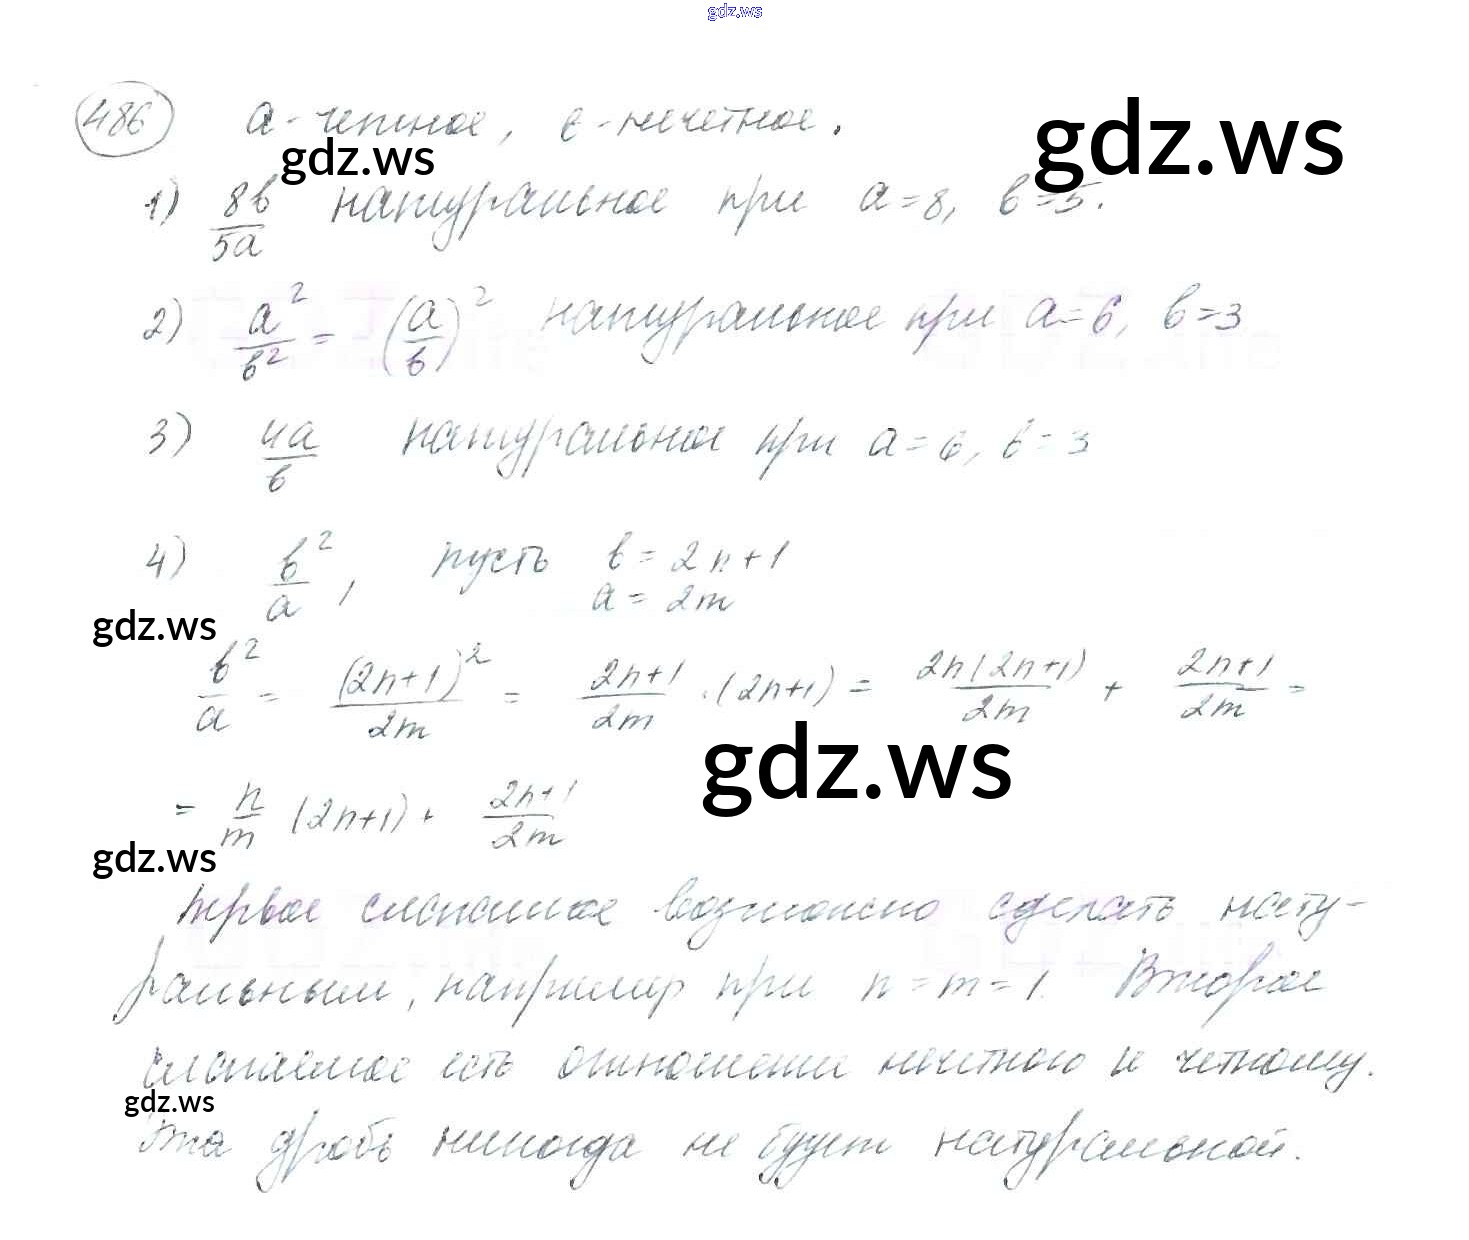 gdz.ws
486 a - четное, b - нечетное.
gdz.ws gdz.ws
1) 8b/5a натуральное при a = 8, b = 5.
2) a²/b² = (a/b)² натуральное при a = 6, b = 3
3) 4a/b натуральное при a = 6, b = 3
4) b²/a, пусть b = 2n+1
a = 2m
gdz.ws
b²/a = (2n+1)²/2m = 2n+1/2m · (2n+1) = 2n(2n+1)/2m + 2n+1/2m =
gdz.ws
= n/m (2n+1) + 2n+1/2m
gdz.ws
Первое слагаемое возможно сделать нату-
ральным, например при n = m = 1. Второе
слагаемое есть отношение нечетного к четному.
gdz.ws
Эта дробь никогда не будет натуральной.